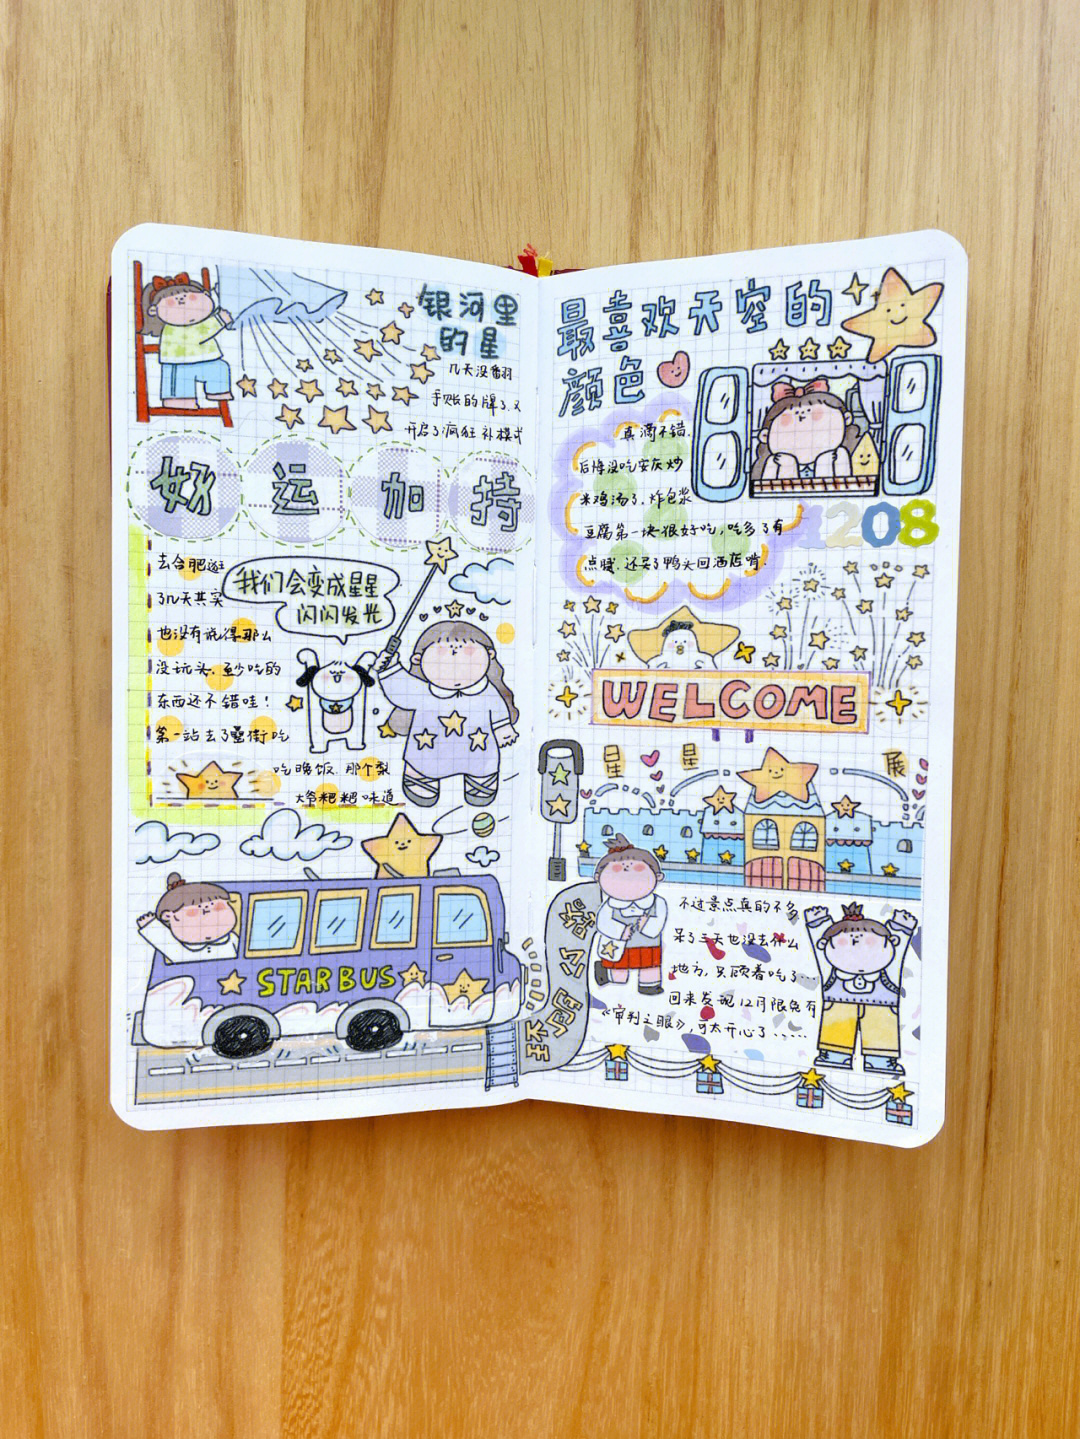 银河里
的星
几天没翻
手账的牌了.又
开启了疯狂补模式
好运加持
去合肥逛
了几天其实
也没有说得那么
没玩头.至少吃的
东西还不错哇!
第一站去了罍街吃
吃晚饭.那个梨
大爷粑粑味道
我们会变成星星
闪闪发光
STAR BUS
最喜欢天空的
颜色
真滴不错.
后悔没吃安庆炒
米鸡汤了.炸包浆
豆腐第一块很好吃,吃多了有
点腻.还买了鸭头回酒店啃.
1208
WELCOME
星星展
环翠公路
不过景点真的不多
呆了三天也没去什么
地方,只顾着吃了...
回来发现12月限免有
《审判之眼》,可太开心了.....